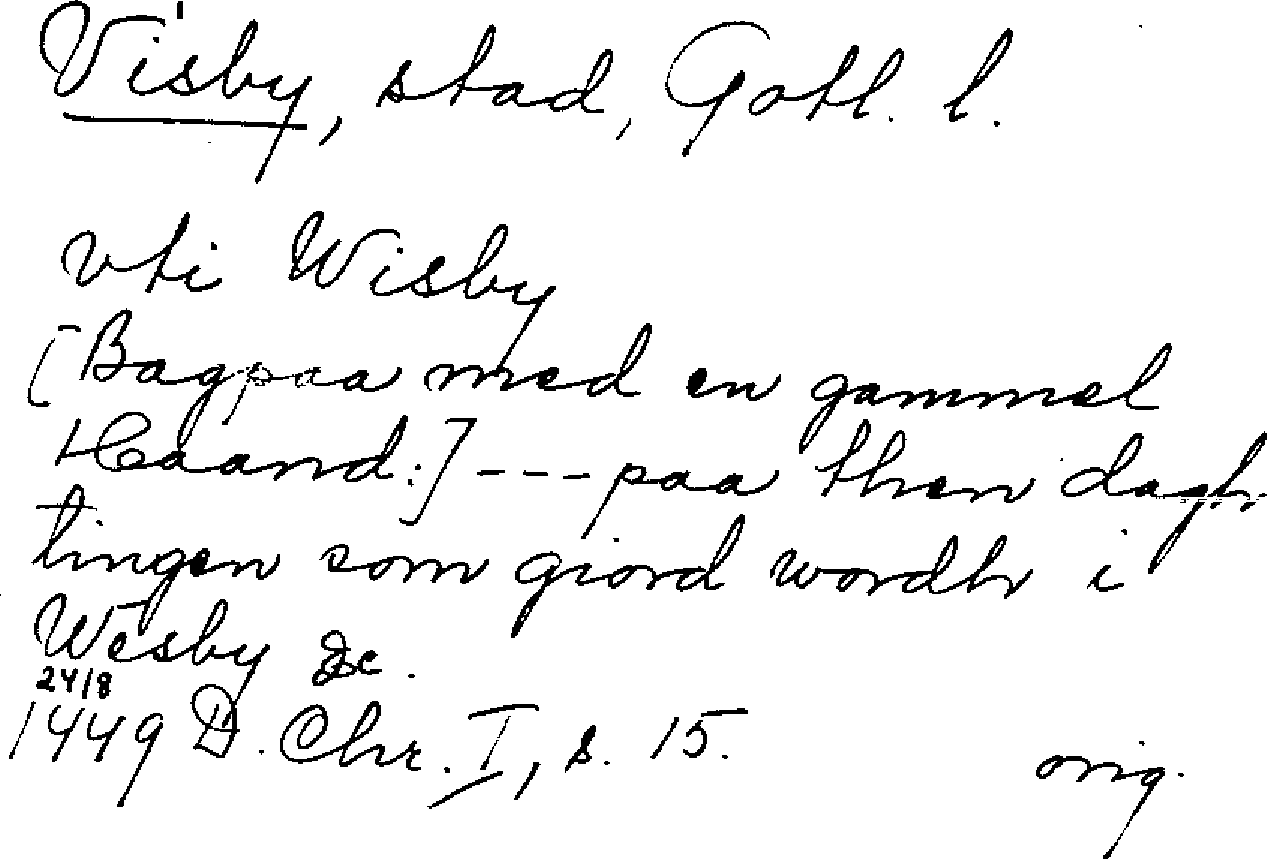 Visby, stad, Gotl. l.
vti Wisby
[Bagpaa med en gammel
Haand:] --- paa then dagh
tingen som giord wordhr i
Wesby &c.
24/8
1449 D. Chr. I, s. 15.
orig.